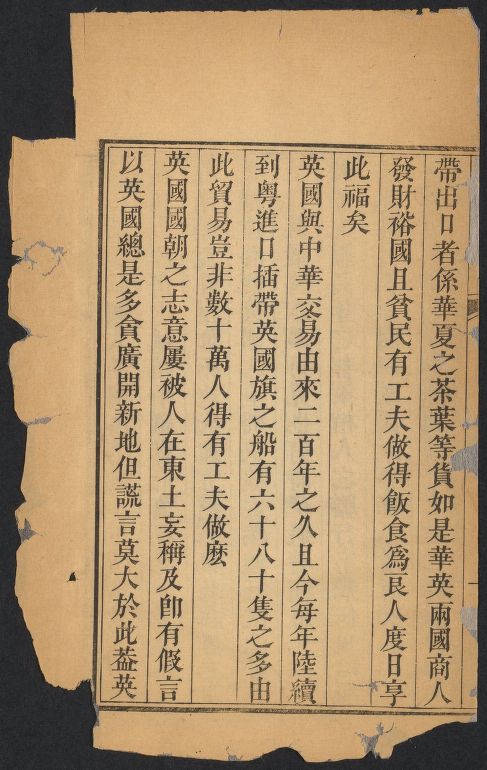 帶出口者係華夏之茶葉等貨如是華英兩國商人
發財裕國且貧民有工夫做得飯食爲艮人度日享
此福矣
英國與中華交易由來二百年之久且今每年陸續
到粵進口插帶英國旗之船有六十八十隻之多由
此貿易豈非數十萬人得有工夫做麽
英國國朝之志意屢被人在東土妄稱及卽有假言
以英國總是多貪廣開新地但謊言莫大於此葢英